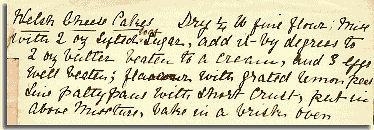 Welsh Cheese Cakes Dry ¼ lb fine flour: Mix
with 2 oz sifted Sugar, add it by degrees to
2 oz butter beaten to a cream, and 3 eggs
well beaten; flavour with grated lemon peel
Line pattypans with short crust, put in
above mixture, bake in a brisk oven